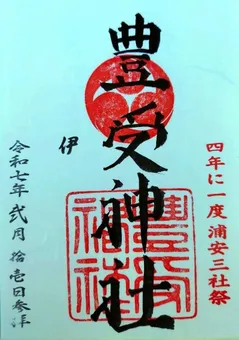 四年に一度浦安三社祭
豊受神社
伊
令和七年弐月拾壱日参拝